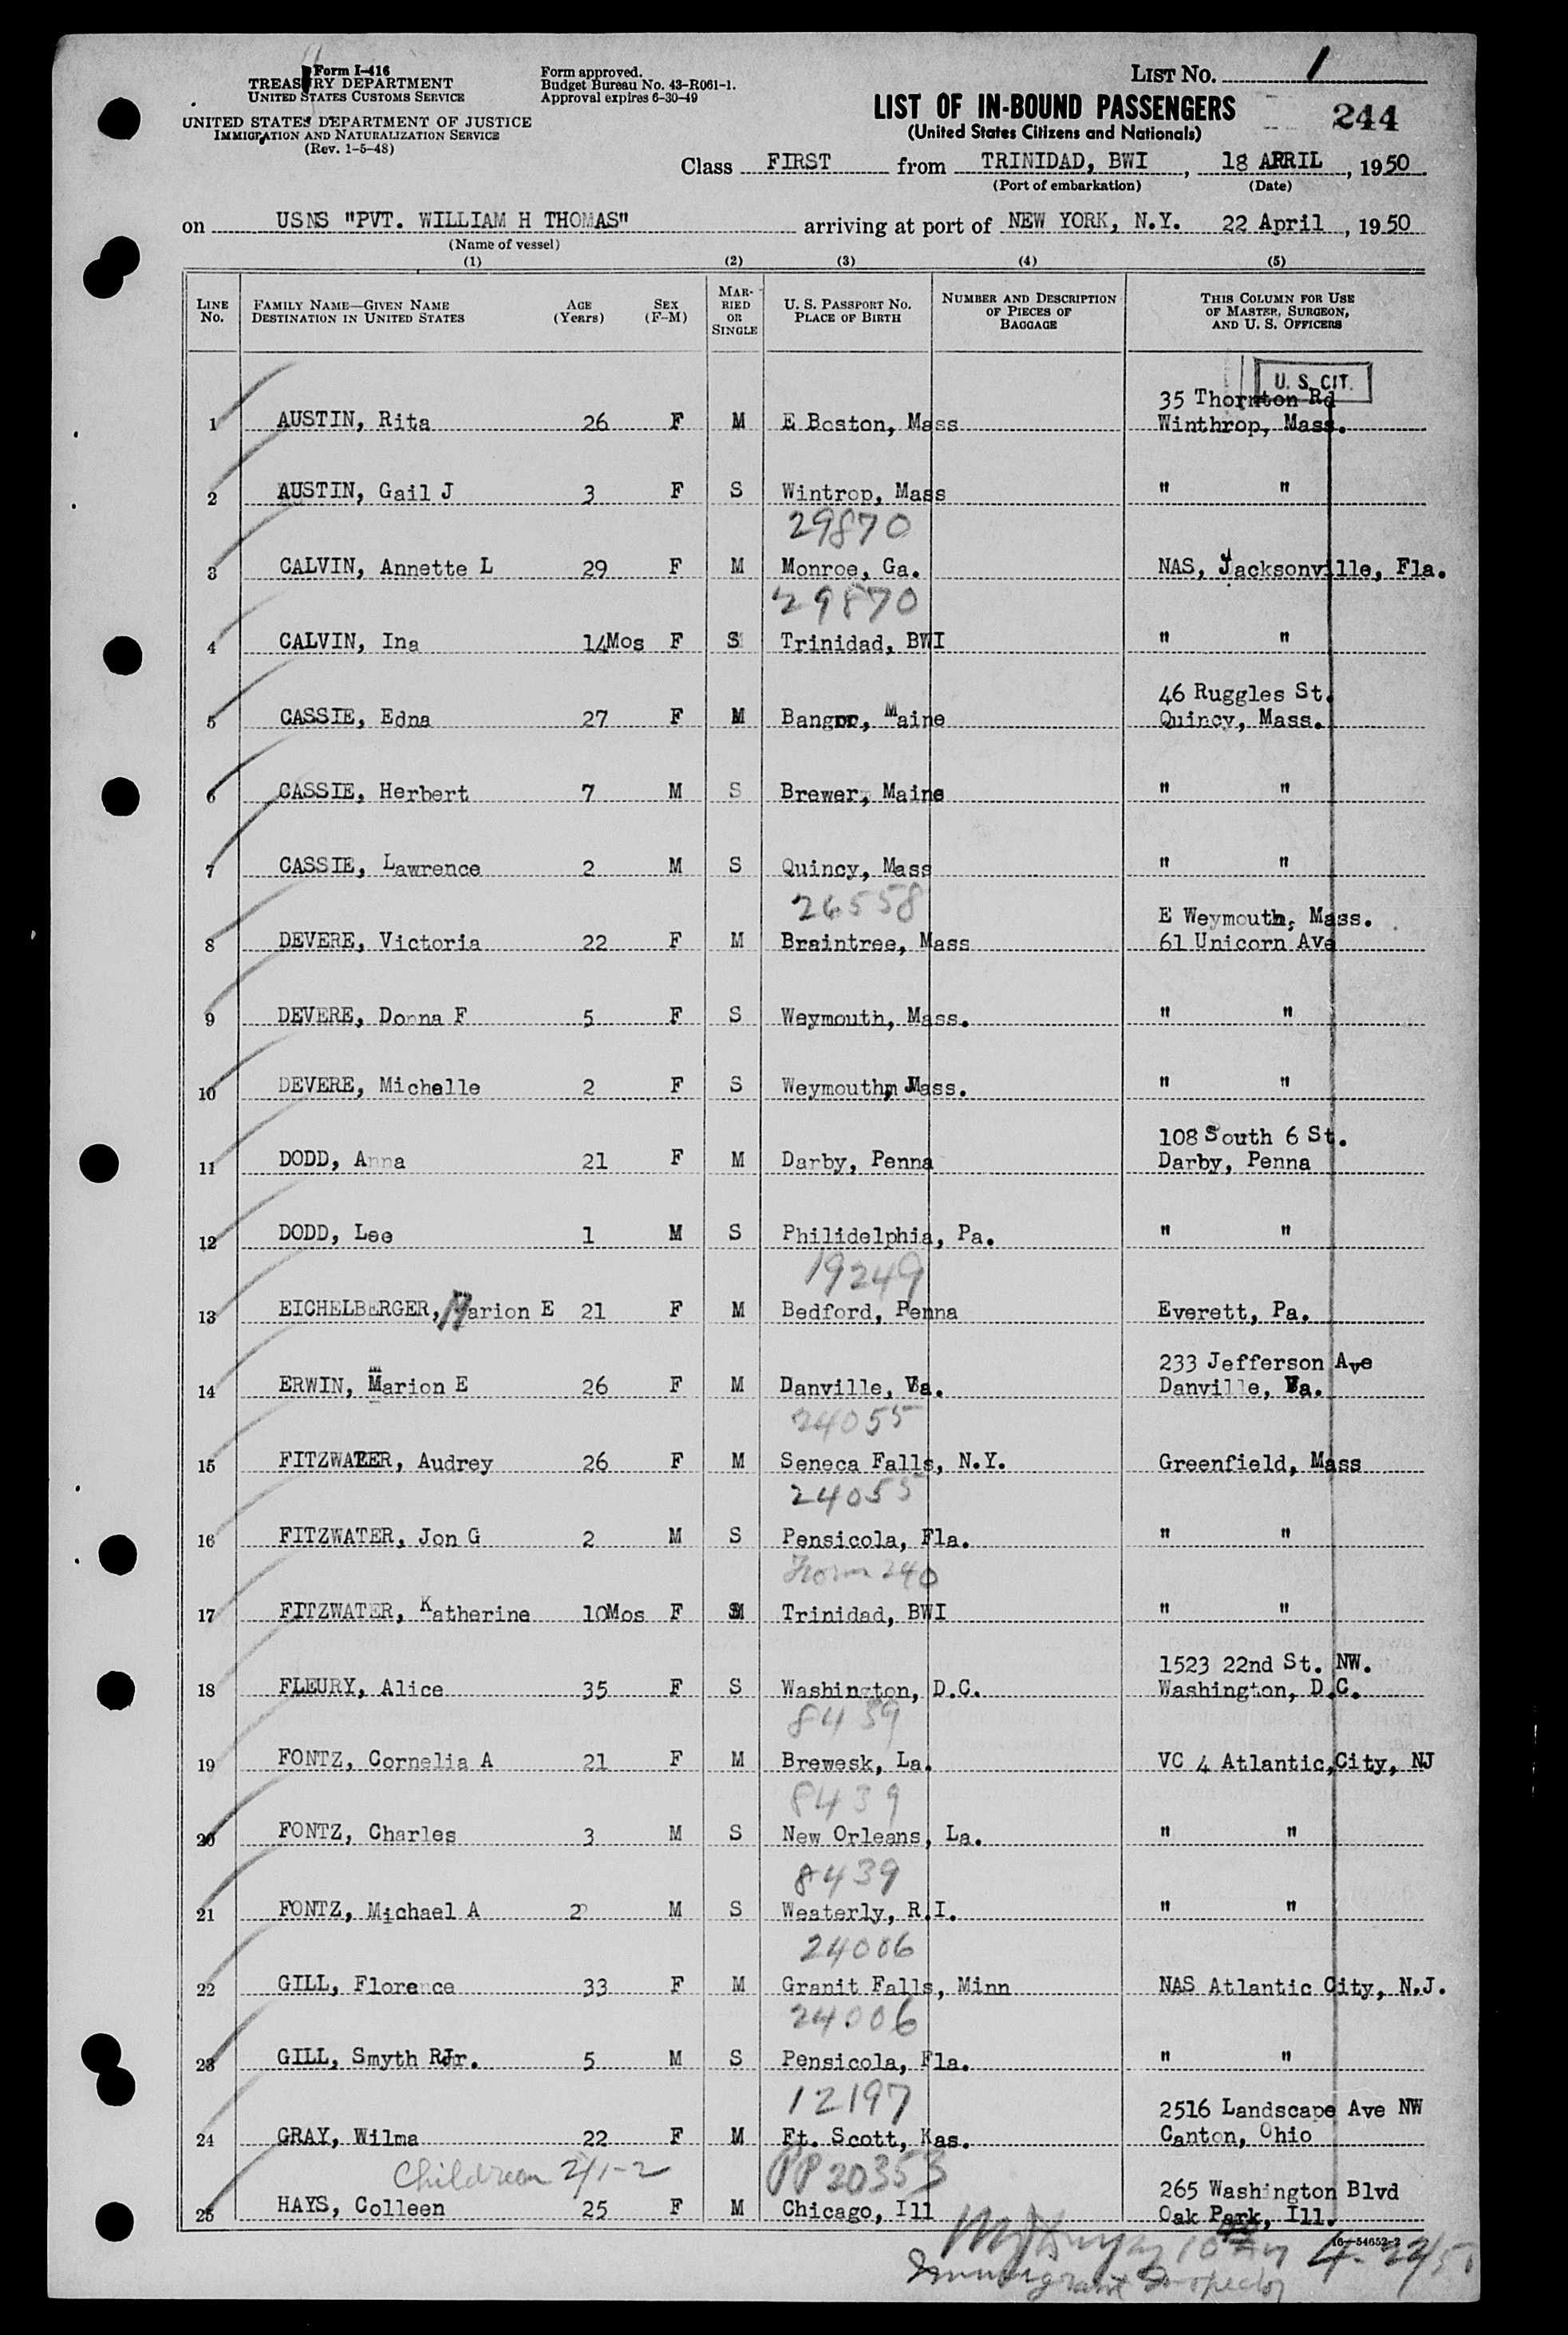 Form I-416
TREASURY DEPARTMENT
UNITED STATES CUSTOMS SERVICE
UNITED STATES DEPARTMENT OF JUSTICE
IMMIGRATION AND NATURALIZATION SERVICE
(Rev. 1-5-48)
Form approved.
Budget Bureau No. 43-R061-1.
Approval expires 6-30-49
LIST NO. 1
LIST OF IN-BOUND PASSENGERS
(United States Citizens and Nationals)
244
Class FIRST from TRINIDAD, BWI, 18 APRIL, 1950
(Port of embarkation) (Date)
on USNS "PVT. WILLIAM H THOMAS" arriving at port of NEW YORK, N.Y. 22 April, 1950
(Name of vessel)
(1) (2) (3) (4) (5)
LINE NO. FAMILY NAME—GIVEN NAME DESTINATION IN UNITED STATES AGE (Years) SEX (F-M) MARRIED OR SINGLE U. S. PASSPORT NO. PLACE OF BIRTH NUMBER AND DESCRIPTION OF PIECES OF BAGGAGE THIS COLUMN FOR USE OF MASTER, SURGEON, AND U. S. OFFICERS
U. S. CIT.
35 Thornton Rd
1 AUSTIN, Rita 26 F M E Boston, Mass Winthrop, Mass.
2 AUSTIN, Gail J 3 F S Wintrop, Mass " "
29870
3 CALVIN, Annette L 29 F M Monroe, Ga. NAS, Jacksonville, Fla.
29870
4 CALVIN, Ina 14Mos F S Trinidad, BWI " "
46 Ruggles St.
5 CASSIE, Edna 27 F M Bangor, Maine Quincy, Mass.
6 CASSIE, Herbert 7 M S Brewer, Maine " "
7 CASSIE, Lawrence 2 M S Quincy, Mass " "
26558 E Weymouth, Mass.
8 DEVERE, Victoria 22 F M Braintree, Mass 61 Unicorn Ave
9 DEVERE, Donna F 5 F S Weymouth, Mass. " "
10 DEVERE, Michelle 2 F S Weymouth, Mass. " "
108 South 6 St.
11 DODD, Anna 21 F M Darby, Penna Darby, Penna
12 DODD, Lee 1 M S Philidelphia, Pa. " "
19249
13 EICHELBERGER, Marion E 21 F M Bedford, Penna Everett, Pa.
233 Jefferson Ave
14 ERWIN, Marion E 26 F M Danville, Va. Danville, Va.
24055
15 FITZWATER, Audrey 26 F M Seneca Falls, N.Y. Greenfield, Mass
24055
16 FITZWATER, Jon G 2 M S Pensicola, Fla. " "
Form 240
17 FITZWATER, Katherine 10Mos F S Trinidad, BWI " "
1523 22nd St. NW.
18 FLEURY, Alice 35 F S Washington, D.C. Washington, D.C.
8439
19 FONTZ, Cornelia A 21 F M Brewesk, La. VC 4 Atlantic,City, NJ
8439
20 FONTZ, Charles 3 M S New Orleans, La. " "
8439
21 FONTZ, Michael A 2 M S Weaterly, R.I. " "
24006
22 GILL, Florence 33 F M Granit Falls, Minn NAS Atlantic City, N.J.
24006
23 GILL, Smyth RJr. 5 M S Pensicola, Fla. " "
12197 2516 Landscape Ave NW
24 GRAY, Wilma 22 F M Ft. Scott, Kas. Canton, Ohio
Children 2/1-2 PP 20353 265 Washington Blvd
25 HAYS, Colleen 25 F M Chicago, Ill Oak Park, Ill.
16—54652-2
4-22/50
Immigrant Inspector